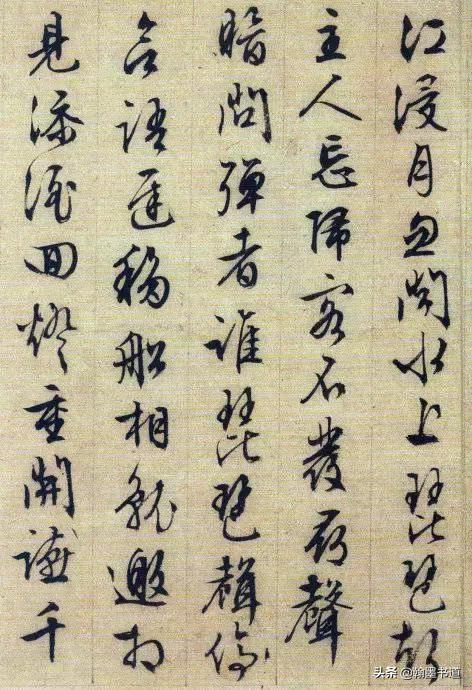 江浸月忽聞水上琵琶聲
主人忘歸客不發尋聲
暗問彈者誰琵琶聲停
欲語遲移船相就邀相
見添酒回燈重開讌千
头条 @翰墨书道